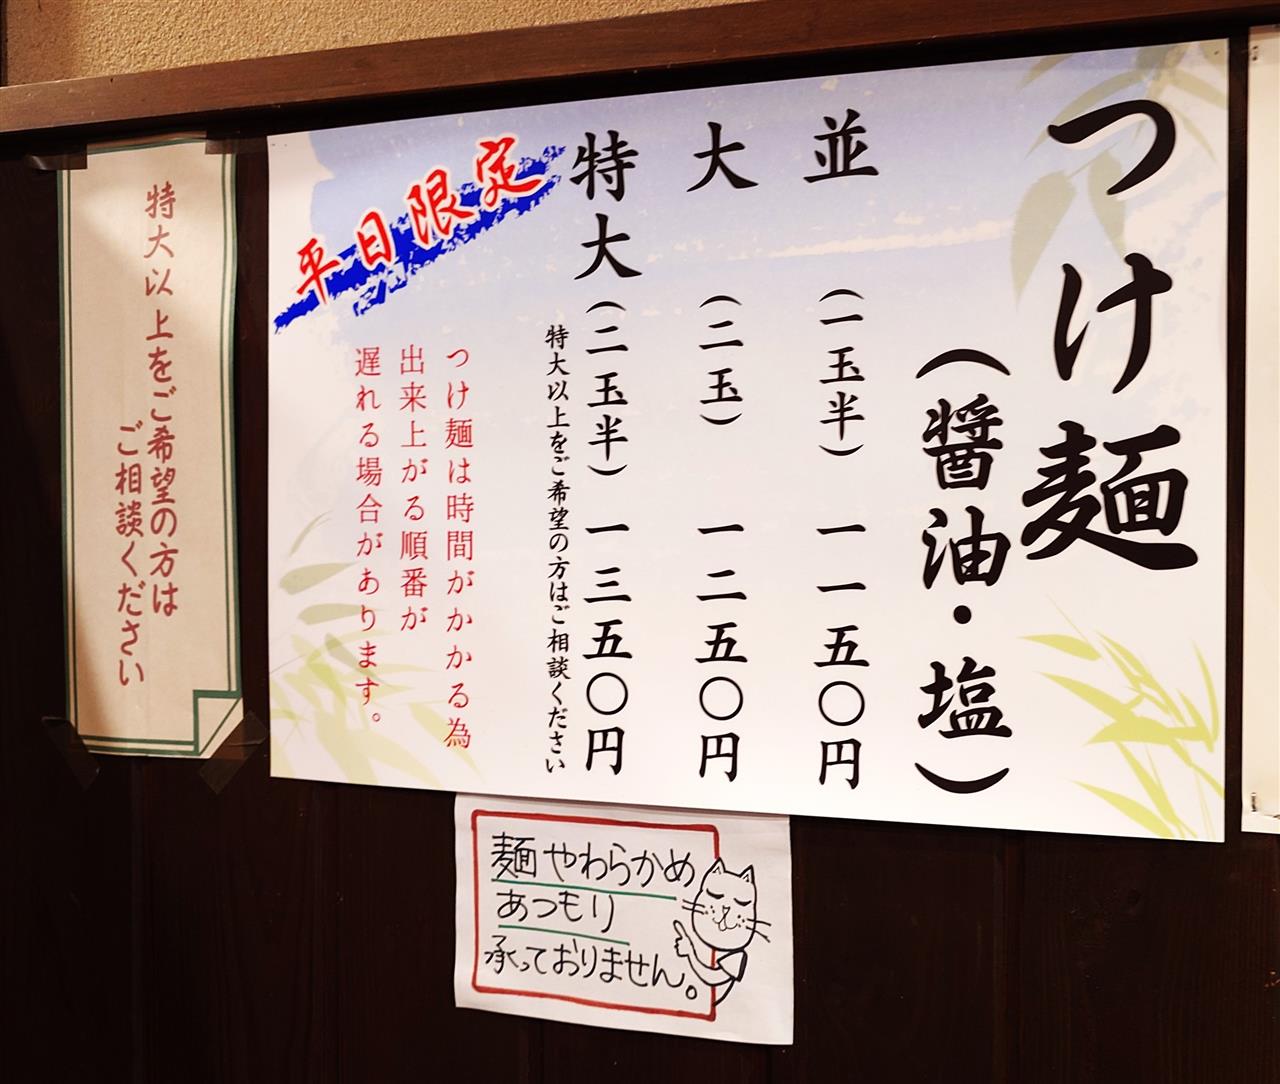 つけ麺
（醤油・塩）
並（一玉半）一一五〇円
大（二玉）一二五〇円
特大（二玉半）一三五〇円
特大以上をご希望の方はご相談ください
平日限定
つけ麺は時間がかかる為
出来上がる順番が
遅れる場合があります。
特大以上をご希望の方は
ご相談ください
麺やわらかめ
あつもり
承っておりません。